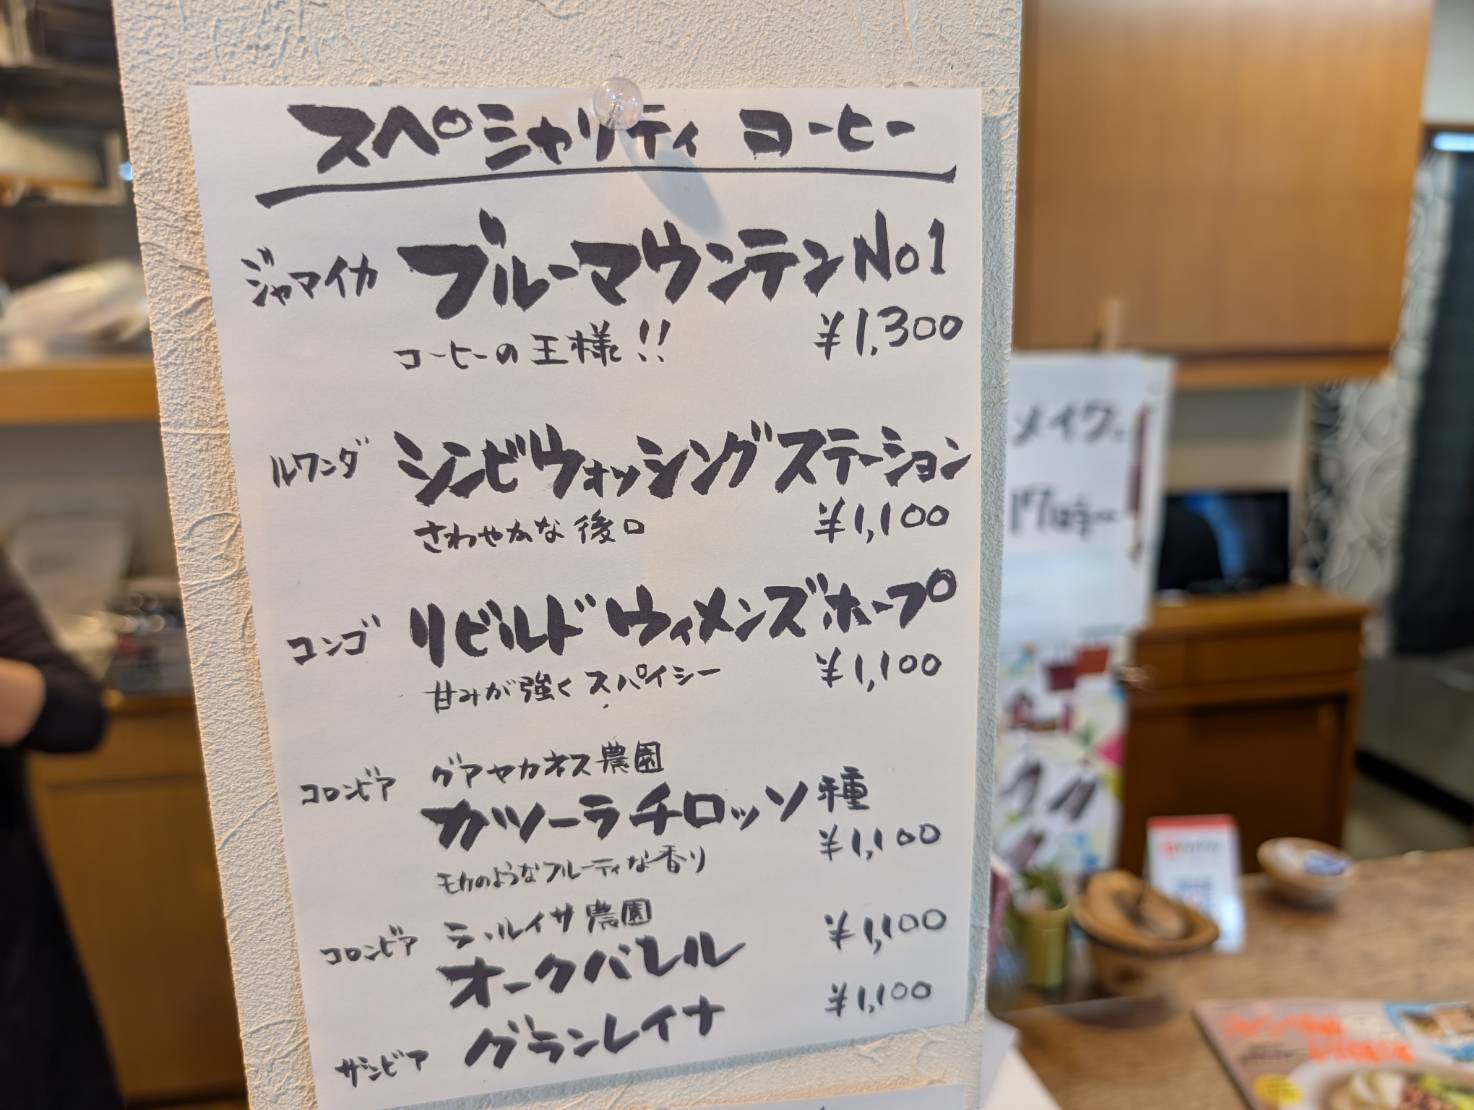 スペシャリティ コーヒー
ジャマイカ ブルーマウンテンNo1
コーヒーの王様!! ¥1,300
ルワンダ シンビウォッシングステーション
さわやかな後口 ¥1,100
コンゴ リビルドウィメンズホープ
甘みが強くスパイシー ¥1,100
コロンビア グアヤカネス農園
カツーラチロッソ種
¥1,100
モカのようなフルーティな香り
コロンビア ラ・ルイサ農園 ¥1,100
オークバレル
ザンビア グランレイナ ¥1,100